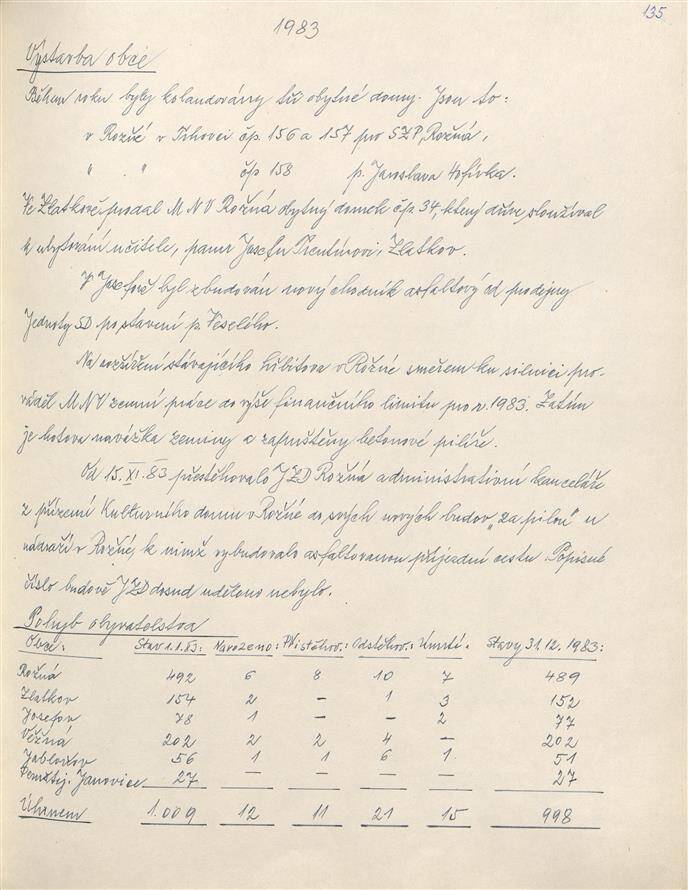 135
1983
Výstavba obce
Během roku byly kolaudovány tři obytné domy. Jsou to:
v Rožné v Trhovci čp. 156 a 157 pro SZP, Rožná,
" " čp 158 p. Jaroslava
Ve Zlatkově prodal MNV Rožná obytný domek čp. 34, který dříve sloužíval
k ubytování učitele, panu Josefu Zlatkov.
V Josefově byl zbudován nový chodník asfaltový od prodejny
Jednoty SD po stavení p. Veselého.
Na rozšíření stávajícího hřbitova v Rožné směrem ku silnici pro-
váděl MNV zemní práce do výše finančního limitu pro r. 1983. Zatím
je hotova navážka zeminy a zapuštěny betonové pilíře.
Od 15. XI. 83 přestěhovalo JZD Rožná administrativní kanceláře
z přízemí Kulturního domu v Rožné do svých nových budov „Za pilou" u
nádraží v Rožné, k nimž vybudovalo asfaltovanou příjezdní cestu. Popisné
číslo budově JZD dosud uděleno nebylo.
Pohyb obyvatelstva
Obce: Stav 1.1.83: Narozeno: Přistěhov.: Odstěhov.: Umrtí. Stavy 31.12.1983:
Rožná 492 6 8 10 7 489
Zlatkov 154 2 – 1 3 152
Josefov 78 1 – – 2 77
Věžná 202 2 2 4 – 202
Jabloňov 56 1 1 6 1 51
Janovice 27 – – – – 27
Úhrnem 1.009 12 11 21 15 998